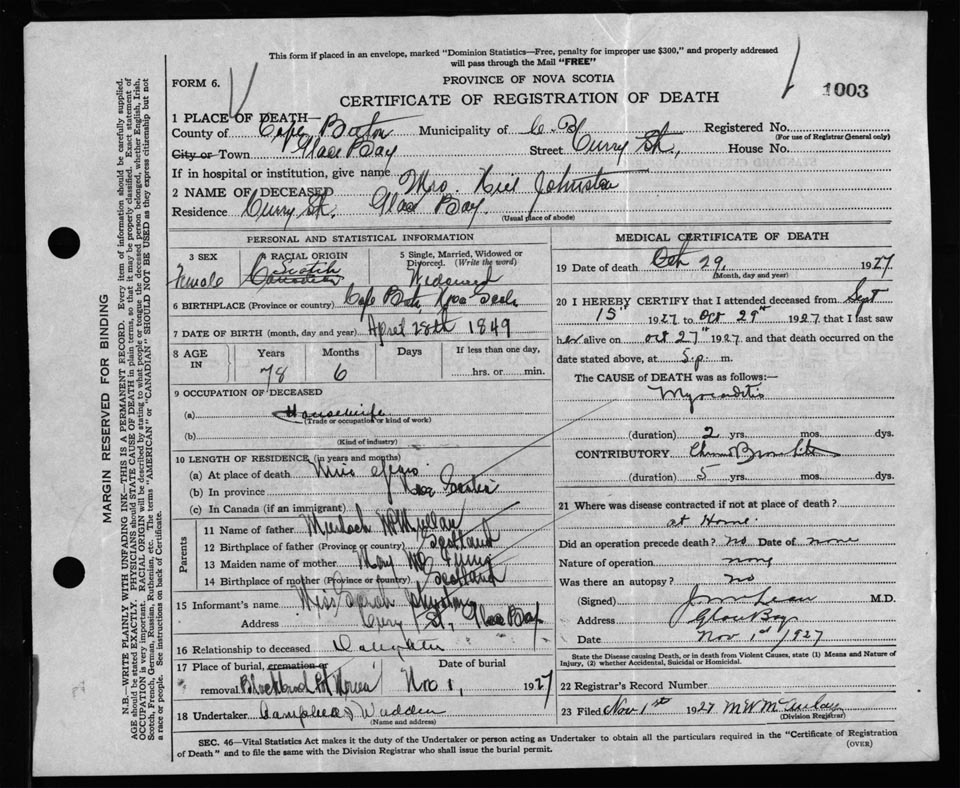 This form if placed in an envelope, marked "Dominion Statistics—Free, penalty for improper use $300," and properly addressed
will pass through the Mail "FREE"
FORM 6.
PROVINCE OF NOVA SCOTIA
1003
CERTIFICATE OF REGISTRATION OF DEATH
1 PLACE OF DEATH—
County of Cape Breton Municipality of C. B. Registered No.
(For use of Registrar General only)
City or Town Glace Bay Street Curry St, House No.
If in hospital or institution, give name
2 NAME OF DECEASED Mrs. Neil Johnston
Residence Curry St. Glace Bay.
(Usual place of abode)
PERSONAL AND STATISTICAL INFORMATION
3 SEX Female
4 RACIAL ORIGIN Scotch Canadian
5 Single, Married, Widowed or Divorced. (Write the word) Widowed
6 BIRTHPLACE (Province or country) Cape Breton, Nova Scotia
7 DATE OF BIRTH (month, day and year) April 28th 1849
8 AGE IN Years Months Days If less than one day,
78 6 hrs. or min.
9 OCCUPATION OF DECEASED
(a) Housewife
(Trade or occupation or kind of work)
(b)
(Kind of industry)
10 LENGTH OF RESIDENCE (in years and months)
(a) At place of death
(b) In province Nova Scotia
(c) In Canada (if an immigrant)
Parents
11 Name of father Murdoch McMullan
12 Birthplace of father (Province or country) Scotland
13 Maiden name of mother Mary
14 Birthplace of mother (Province or country) Scotland
15 Informant's name Miss Sarah Johnston
Address Curry St, Glace Bay
16 Relationship to deceased Daughter
17 Place of burial, cremation or removal
Date of burial Nov 1, 1927
18 Undertaker Wadden
(Name and address)
MEDICAL CERTIFICATE OF DEATH
19 Date of death Oct 29, 1927
(Month, day and year)
20 I HEREBY CERTIFY that I attended deceased from Sept
15th 1927 to Oct 29th 1927 that I last saw
her alive on Oct 27th 1927 and that death occurred on the
date stated above, at 5 p. m.
The CAUSE of DEATH was as follows:—
Myocarditis
(duration) 2 yrs. mos. dys.
CONTRIBUTORY Chronic Bronchitis
(duration) 5 yrs. mos. dys.
21 Where was disease contracted if not at place of death?
at Home.
Did an operation precede death? no Date of none
Nature of operation none
Was there an autopsy? no
(Signed) M.D.
Address Glace Bay
Date Nov 1st 1927
State the Disease causing Death, or in death from Violent Causes, state (1) Means and Nature of
Injury, (2) whether Accidental, Suicidal or Homicidal.
22 Registrar's Record Number
23 Filed Nov 1st 1927
(Division Registrar)
SEC. 46—Vital Statistics Act makes it the duty of the Undertaker or person acting as Undertaker to obtain all the particulars required in the "Certificate of Registration
of Death" and to file the same with the Division Registrar who shall issue the burial permit.
(OVER)
MARGIN RESERVED FOR BINDING
N.B.—WRITE PLAINLY WITH UNFADING INK—THIS IS A PERMANENT RECORD. Every item of information should be carefully supplied.
AGE should be stated EXACTLY. PHYSICIANS should STATE CAUSE OF DEATH in plain terms, so that it may be properly classified. Exact statement of
OCCUPATION is very important. RACIAL ORIGIN will be described by stating to what people or tongue the deceased person belonged, whether English, Irish,
Scotch, French, German, Russian, Ruthenian, etc. The terms "AMERICAN" or "CANADIAN" SHOULD NOT BE USED as they express citizenship but not
a race or people. See instructions on back of Certificate.